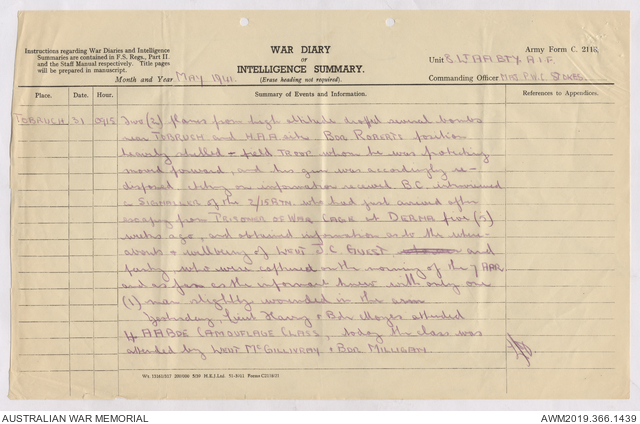 Instructions regarding War Diaries and Intelligence
Summaries are contained in F.S. Regs., Part II.
and the Staff Manual respectively. Title pages
will be prepared in manuscript.
WAR DIARY
OF
INTELLIGENCE SUMMARY.
(Erase heading not required).
Army Form C. 2118.
Month and Year MAY 1941.
Unit 8 LT AA BTY. A.I.F.
Commanding Officer MAJ. P.W. STOKES
Place. Date. Hour. Summary of Events and Information. References to Appendices.
TOBRUCH 31 0915 Two (2) planes from high altitude dropped several bombs
near TOBRUCH and H.A.A. site. BDR ROBERTS position
heavily shelled - field TROOP whom he was protecting
moved forward, and his gun was accordingly re-
disposed. Acting on information received B.C. interviewed
a SIGNALLER of the 2/15 BTN. who had just arrived after
escaping from PRISONER OF WAR CAGE at DERNA five (5)
weeks ago, and obtained information as to the where-
abouts & wellbeing of LIEUT J.C. GUEST and
party, who were captured on the morning of the 7 APR
and as far as the informant knew with only one
(1) man slightly wounded in the arm
Yesterday, Lieut Harry & Bdr Moyes attended
4 AA BDE CAMOUFLAGE CLASS, today the class was
attended by LIEUT MCGILLIVRAY & BDR MILLIGAN.
AUSTRALIAN WAR MEMORIAL
AWM2019.366.1439